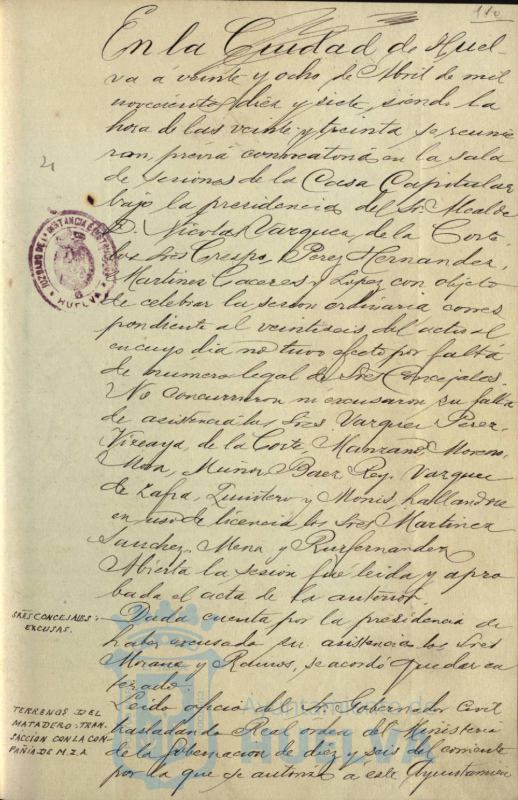 110
En la Ciudad de Huel-
va á veinte y ocho de Abril de mil
novecientos diez y siete, siendo la
hora de las veinte y treinta se reunie
ran, previa convocatoria en la sala
de sesiones de la Casa Capitular
bajo la presidencia del Sr. Alcalde
D. Nicolas Vazquez de la Corte
los Sres Crespo, Perez Hernandez,
Martinez Caceres y Lopez con objeto
de celebrar la sesion ordinaria corres
pondiente al veintiseis del actual
en cuyo dia no tuvo efecto por falta
de numero legal de Sres Concejales.
No concurrieron ni excusaron su falta
de asistencia los Sres Vazquez Perez,
Vizcaya, de la Corte, Manzano, Moreno,
Mora, Muñoz Baez, Rey, Vazquez
de Zafra, Quintero y Monis, hallandose
en uso de licencia los Sres Martinez
Sanchez, Mena y Ruifernandez
Abierta la sesion fué leida y apro
bada el acta de la anterior
SRES CONCEJALES:
EXCUSAS.
Dada cuenta por la presidencia de
haber excusado su asistencia los Sres
Morana y Ramos, se acordó quedar en
terado
TERRENOS DEL
MATADERO: TRAN-
SACCIÓN CON LA COM-
PAÑIA DE M.Z.A.
Leido oficio del Sr. Gobernador Civil
trasladando Real orden del Ministerio
de la Gobernacion de diez y seis del corriente
por la que se autoriza á este Ayuntamien
JUZGADO DE 1ª INSTANCIA E INSTRUCCION
HUELVA
Ayuntamiento de
HUELVA